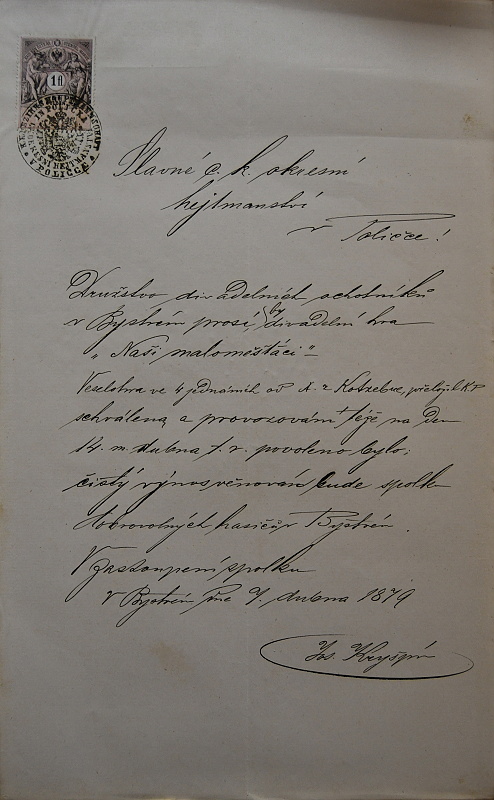 1 fl
V POLIČCE
Slavné c. k. okresní
hejtmanství
v Poličce!
Družstvo divadelních ochotníků
v Bystrém prosí, by divadelní hra
"Naši maloměšťáci"
Veselohra ve 4 jednáních od A. z Kotzebue, přeložil K P
schválena a provozování téže na den
14. m. dubna t. r. povoleno bylo:
čistý výnos věnován bude spolku
dobrovolných hasičů v Bystrém.
V zastoupení spolku
V Bystrém dne 7. dubna 1879
Jos. Kryšpín